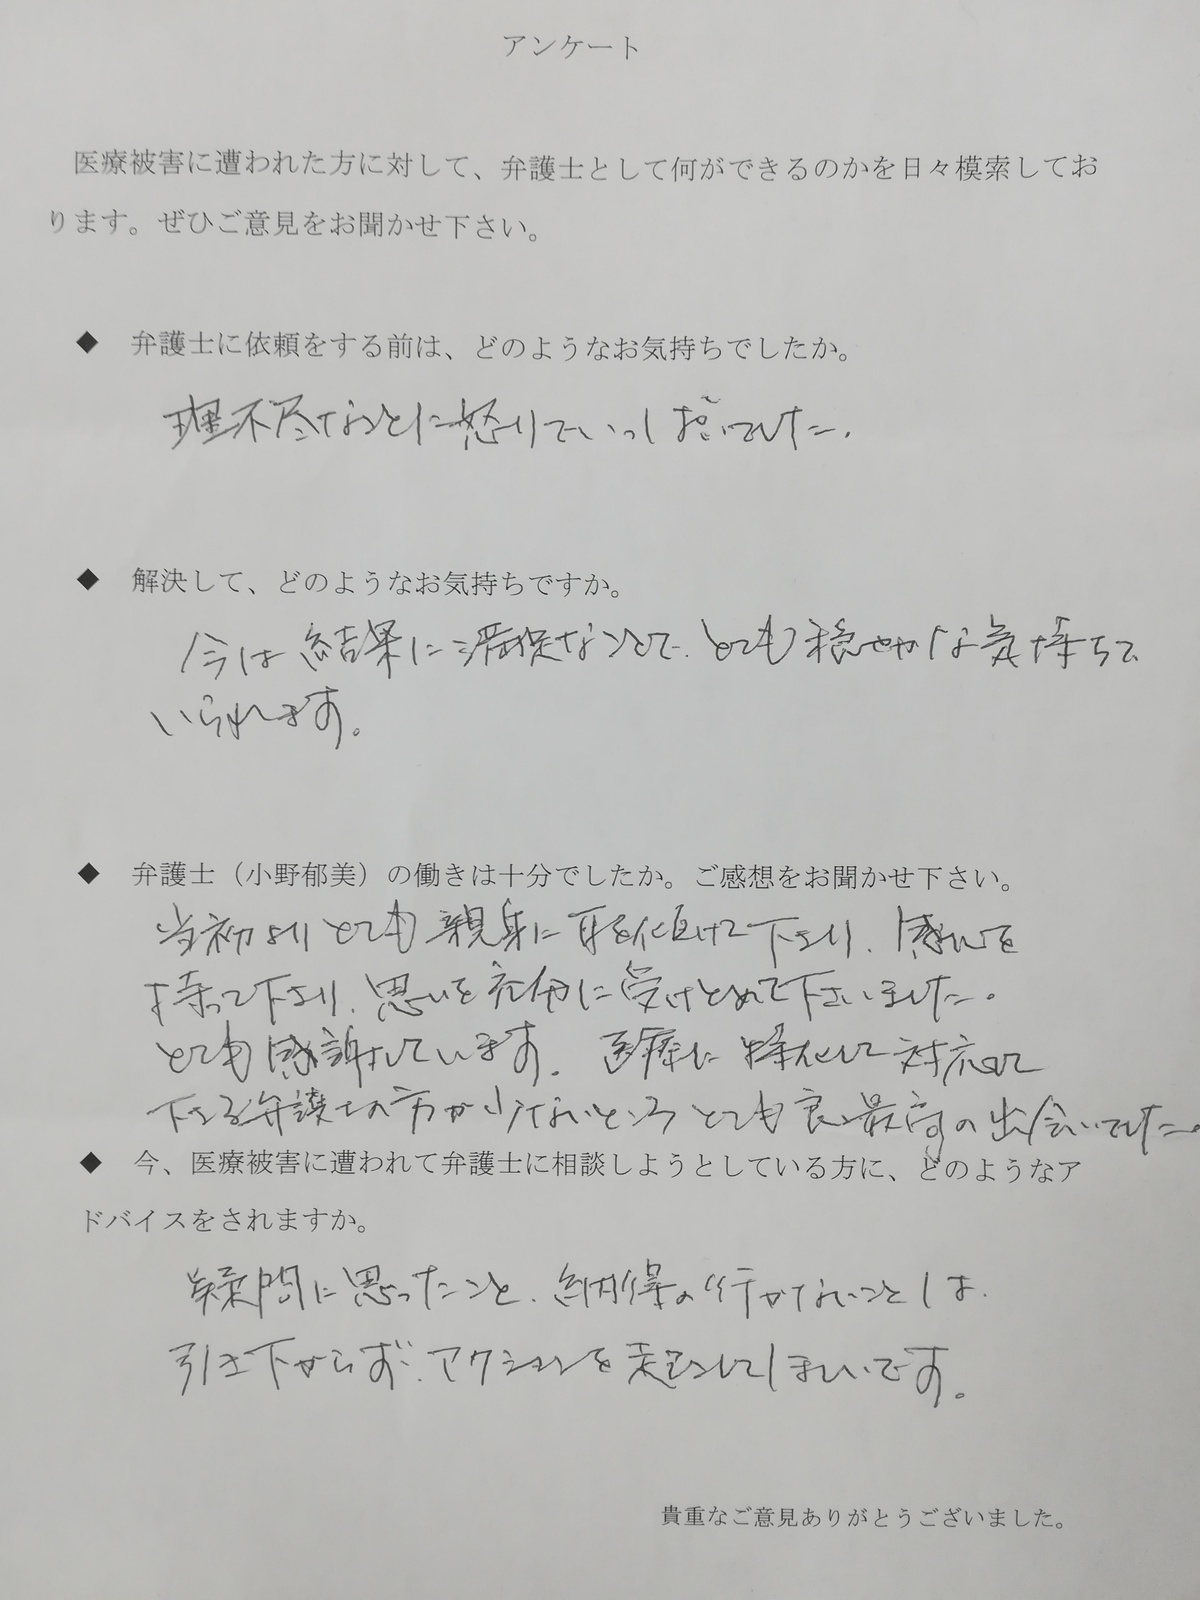 アンケート
医療被害に遭われた方に対して、弁護士として何ができるのかを日々模索してお
ります。ぜひご意見をお聞かせ下さい。
◆ 弁護士に依頼をする前は、どのようなお気持ちでしたか。
理不尽なことに怒りでいっぱいでした。
◆ 解決して、どのようなお気持ちですか。
今は結果に満足なことで、とても穏やかな気持ちで
いられます。
◆ 弁護士（小野郁美）の働きは十分でしたか。ご感想をお聞かせ下さい。
当初よりとても親身に耳を傾けて下さり、感心を
持って下さり、思いを充分に受けとめて下さいました。
とても感謝しています。医療に特化して対応して
下さる弁護士の方が少ないところとても良い最高の出会いでした。
◆ 今、医療被害に遭われて弁護士に相談しようとしている方に、どのようなア
ドバイスをされますか。
疑問に思ったこと、納得の行かないことは、
引き下がらず、アクションを起こしてほしいです。
貴重なご意見ありがとうございました。